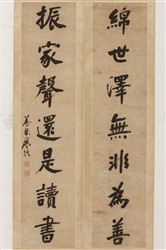 綿世澤無非為善
振家聲還是讀書